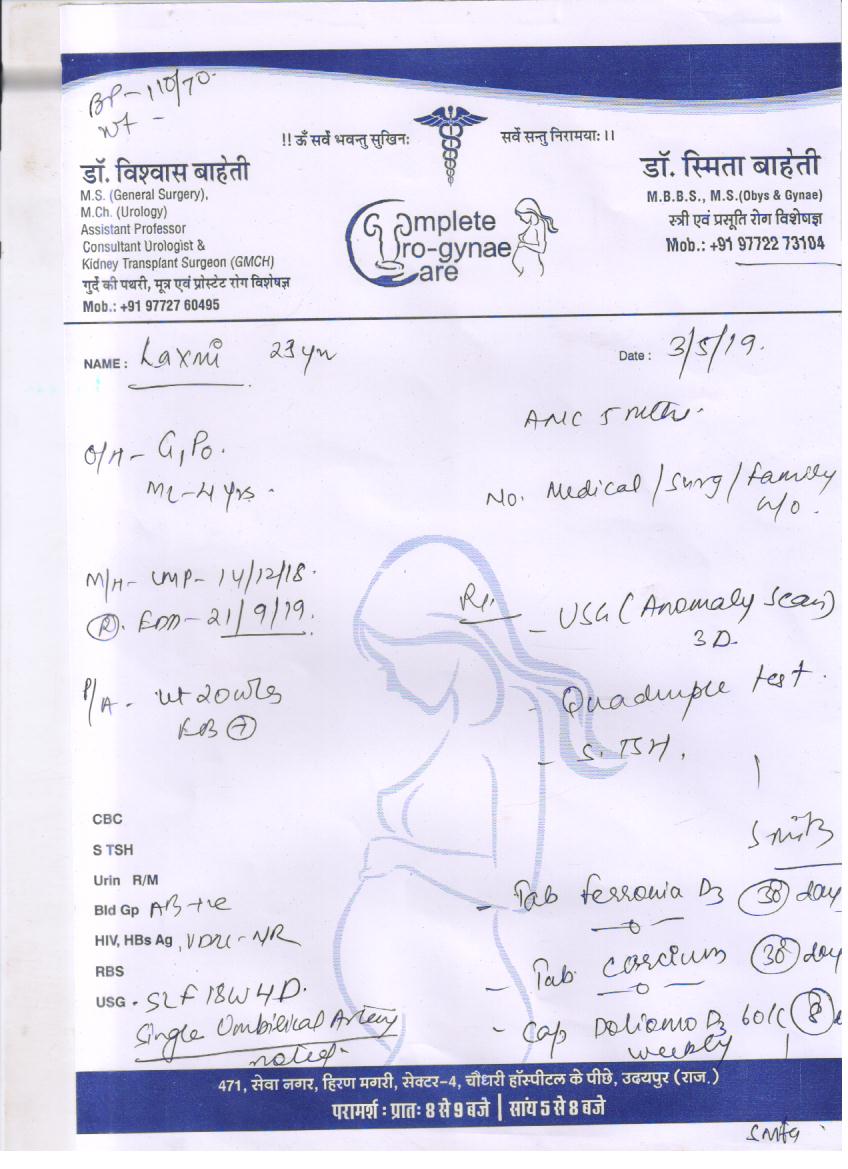 BP - 110/70
wt -
!! ॐ सर्वे भवन्तु सुखिनः
सर्वे सन्तु निरामयाः ।।
डॉ. विश्वास बाहेती
M.S. (General Surgery),
M.Ch. (Urology)
Assistant Professor
Consultant Urologist &
Kidney Transplant Surgeon (GMCH)
गुर्दे की पथरी, मूत्र एवं प्रोस्टेट रोग विशेषज्ञ
Mob.: +91 97727 60495
Complete
Uro-gynae
Care
डॉ. स्मिता बाहेती
M.B.B.S., M.S.(Obys & Gynae)
स्त्री एवं प्रसूति रोग विशेषज्ञ
Mob.: +91 97722 73104
NAME : Laxmi 23 yr
Date : 3/5/19.
ANC 5 mths.
O/H - G1P0.
ML - 4 yrs.
No. Medical / Surg / family
H/O.
M/H - LMP - 14/12/18.
(R). EDD - 21/9/19.
Rx.
- USG (Anomaly Scan)
3D.
P/A - ut 20 wks
FHS (+)
- Quadruple test.
- S. TSH.
CBC
S TSH
Urin R/M
Bld Gp AB +ve
HIV, HBs Ag, VDRL - NR
RBS
USG - SLF 18W 4D.
Single Umbilical Artery
noted.
- Tab 30 day
- Tab 30 day
- Cap D3 60K 8
weekly
471, सेवा नगर, हिरण मगरी, सेक्टर-4, चौधरी हॉस्पीटल के पीछे, उदयपुर (राज.)
परामर्श : प्रातः 8 से 9 बजे | सांय 5 से 8 बजे